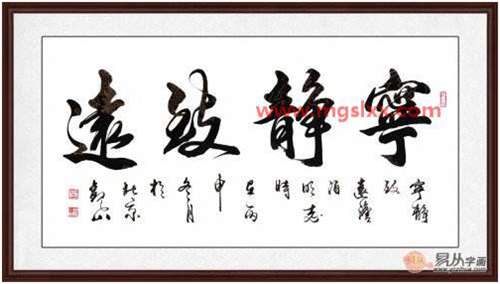 寧靜致遠
寧靜
致
遠澹
泊
明志
時
在丙
申
冬月
於
北京
www.mgslxx.com
易从字画